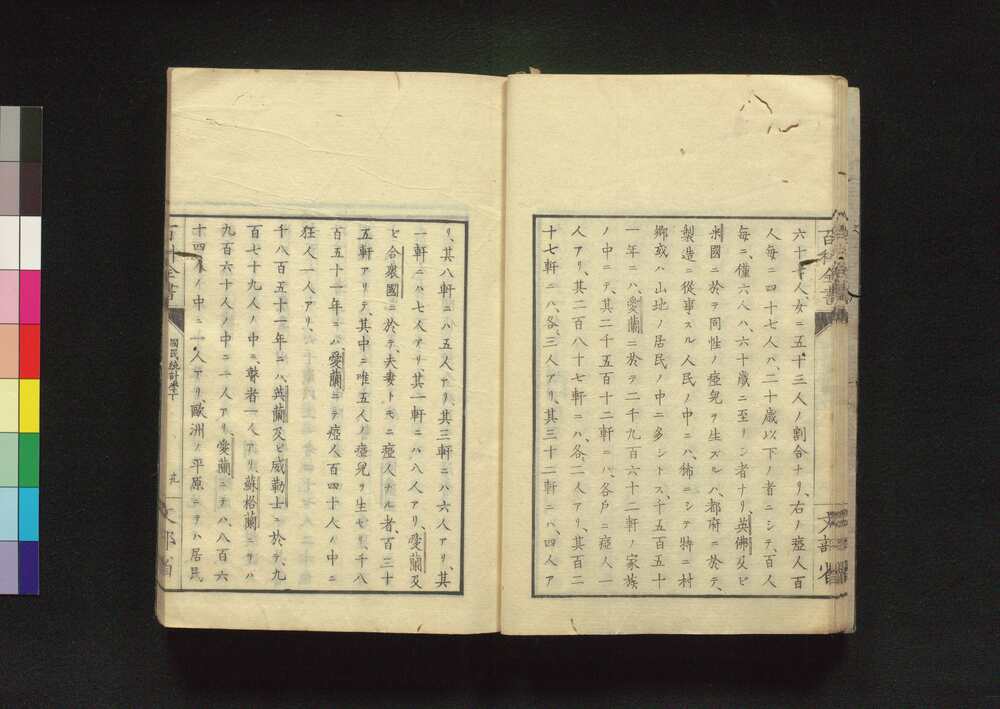 六十七人女ニ五十三人ノ割合ナリ、右ノ瘂人百
人毎ニ四十七人ハ、二十歳以下ノ者ニシテ、百人
毎ニ、僅六人ハ、六十歳ニ至リシ者ナリ、英佛及ビ
米國ニ於テ同性ノ瘂兒ヲ生ズルハ、都府ニ於テ、
製造ニ從事スル人民ノ中ニハ、稀ニシテ特ニ村
鄉或ハ山地ノ居民ノ中ニ多シトス、千五百五十
一年ニハ、愛蘭ニ於テ二千九百六十二軒ノ家族
ノ中ニテ、其二千五百十二軒ニハ、各戸ニ瘂人一
人アリ、其二百八十七軒ニハ、各二人アリ、其百二
十七軒ニハ、各三人アリ、其三十二軒ニハ、四人ア
リ、其八軒ニハ五人アリ、其三軒ニハ六人アリ、其
一軒ニハ七人アリ、其一軒ニハ八人アリ、愛蘭及
ビ合衆國ニ於テ、夫妻トモニ瘂人ナル者、百三十
五軒アリテ、其中ニ唯五人ノ瘂兒ヲ生セリ、千八
百五十一年ニハ、愛蘭ニテ瘂人百四十人ノ中ニ
狂人一人アリ、
千八百五十一年ニハ、英蘭及ビ威勒士ニ於テ、九
百七十九人ノ中ニ、瞽者一人アリ、蘇格蘭ニテハ
九百六十人ノ中ニ一人アリ、愛蘭ニテハ、八百六
十四人ノ中ニ一人アリ、歐洲ノ平原ニテハ居民
百科全書
國民統計學下
九
文部省
百科全書
文部省